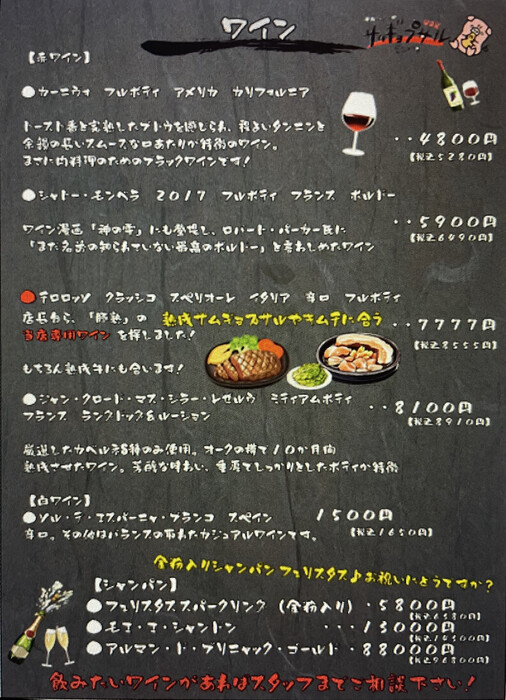 ワイン
サムギョプサル
【赤ワイン】
●カーニヴォ フルボディ アメリカ カリフォルニア
トースト香と完熟したブドウを感じられ、程よいタンニンと
余韻の長いスムースな口あたりが特徴のワイン。
まさに肉料理のためのブラックワインです！
・・4800円
【税込5280円】
●シャトー・モンペラ 2017 フルボディ フランス ボルドー
・・5900円
【税込6490円】
ワイン漫画「神の雫」にも登場し、ロバート・パーカー氏に
「まだ名前の知られていない最高のボルドー」と言わしめたワイン
●テロロッソ クラッシコ スペリオーレ イタリア 辛口 フルボディ
店長自ら、「豚熟」の 熟成サムギョプサルやキムチに合う
当店専用ワイン を探しました！
・・7777円
【税込8555円】
もちろん熟成牛にも合います！
●ジャン・クロード・マズ・シラー・レゼルヴ ミディアムボディ
フランス ラングドック&ルーション
・・8100円
【税込8910円】
厳選したカベルネS種のみ使用。オークの樽で10か月間
熟成させたワイン。芳醇な味わい、重厚でしっかりとしたボディが特徴
【白ワイン】
●ソル・デ・エスパーニャ・ブランコ スペイン 1500円
辛口。その他はバランスの取れたカジュアルワインです。
【税込1650円】
金粉入りシャンパン フェリスタス♪お祝いにどうですか？
【シャンパン】
●フェリスタス スパークリング （金粉入り）・5800円
【税込6380円】
●モエ・エ・シャンドン ・・・13000円
【税込14300円】
●アルマン・ド・ブリニャック・ゴールド・88000円
【税込96800円】
飲みたいワインがあればスタッフまでご相談下さい！